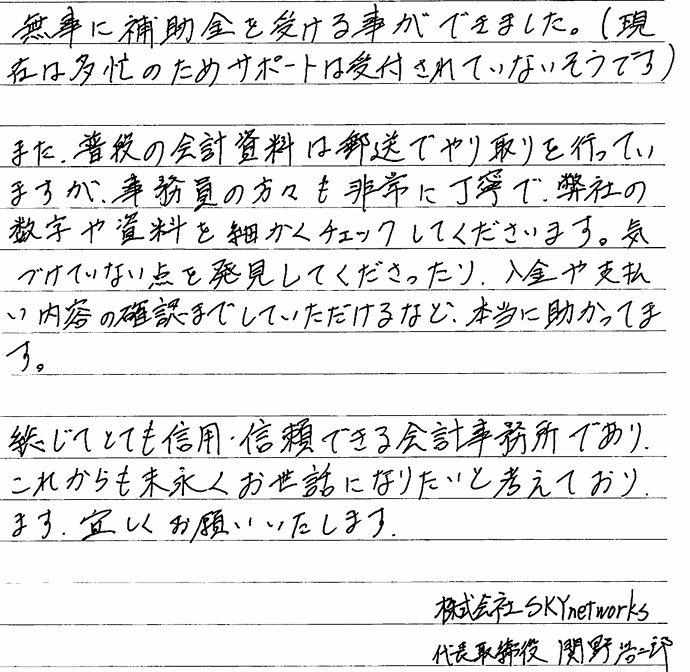 無事に補助金を受ける事ができました。(現
在は多忙のためサポートは受付されていないそうです)
また、普段の会計資料は郵送でやり取りを行ってい
ますが、事務員の方々も非常に丁寧で、弊社の
数字や資料を細かくチェックしてくださいます。気
づけていない点を発見してくださったり、入金や支払
い内容の確認までしていただけるなど、本当に助かってま
す。
総じてとても信用・信頼できる会計事務所であり、
これからも末永くお世話になりたいと考えており、
ます、宜しくお願いいたします。
株式会社SKYnetworks
代表取締役 関野浩二郎